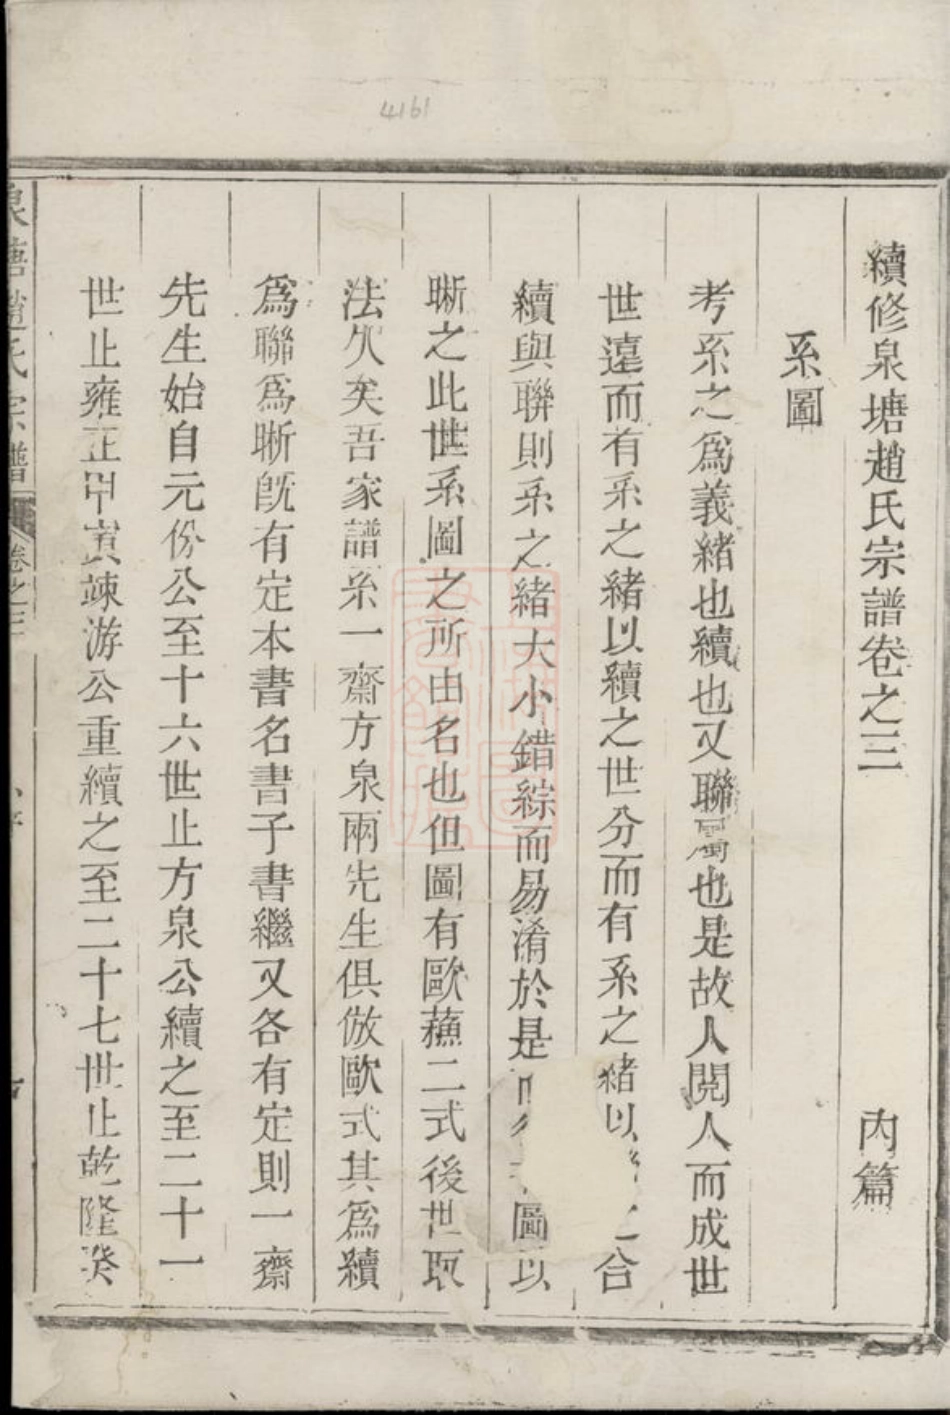 4161
續修泉塘趙氏宗譜卷之三 內篇
系圖
考系之爲義緒也續也又聯屬也是故人閱人而成世
世遠而有系之緒以續之世分而有系之緒以合
續與聯則系之緒大小錯綜而易淆於是圖以
晰之此世系圖之所由名也但圖有歐蘇二式後世取
法久矣吾家譜系一齋方泉兩先生俱倣歐式其爲續
爲聯爲晰旣有定本書名書子書繼又各有定則一齋
先生始自元份公至十六世止方泉公續之至二十一
世止雍正甲寅竦游公重續之至二十七世止乾隆癸
泉塘趙氏宗譜 卷之三